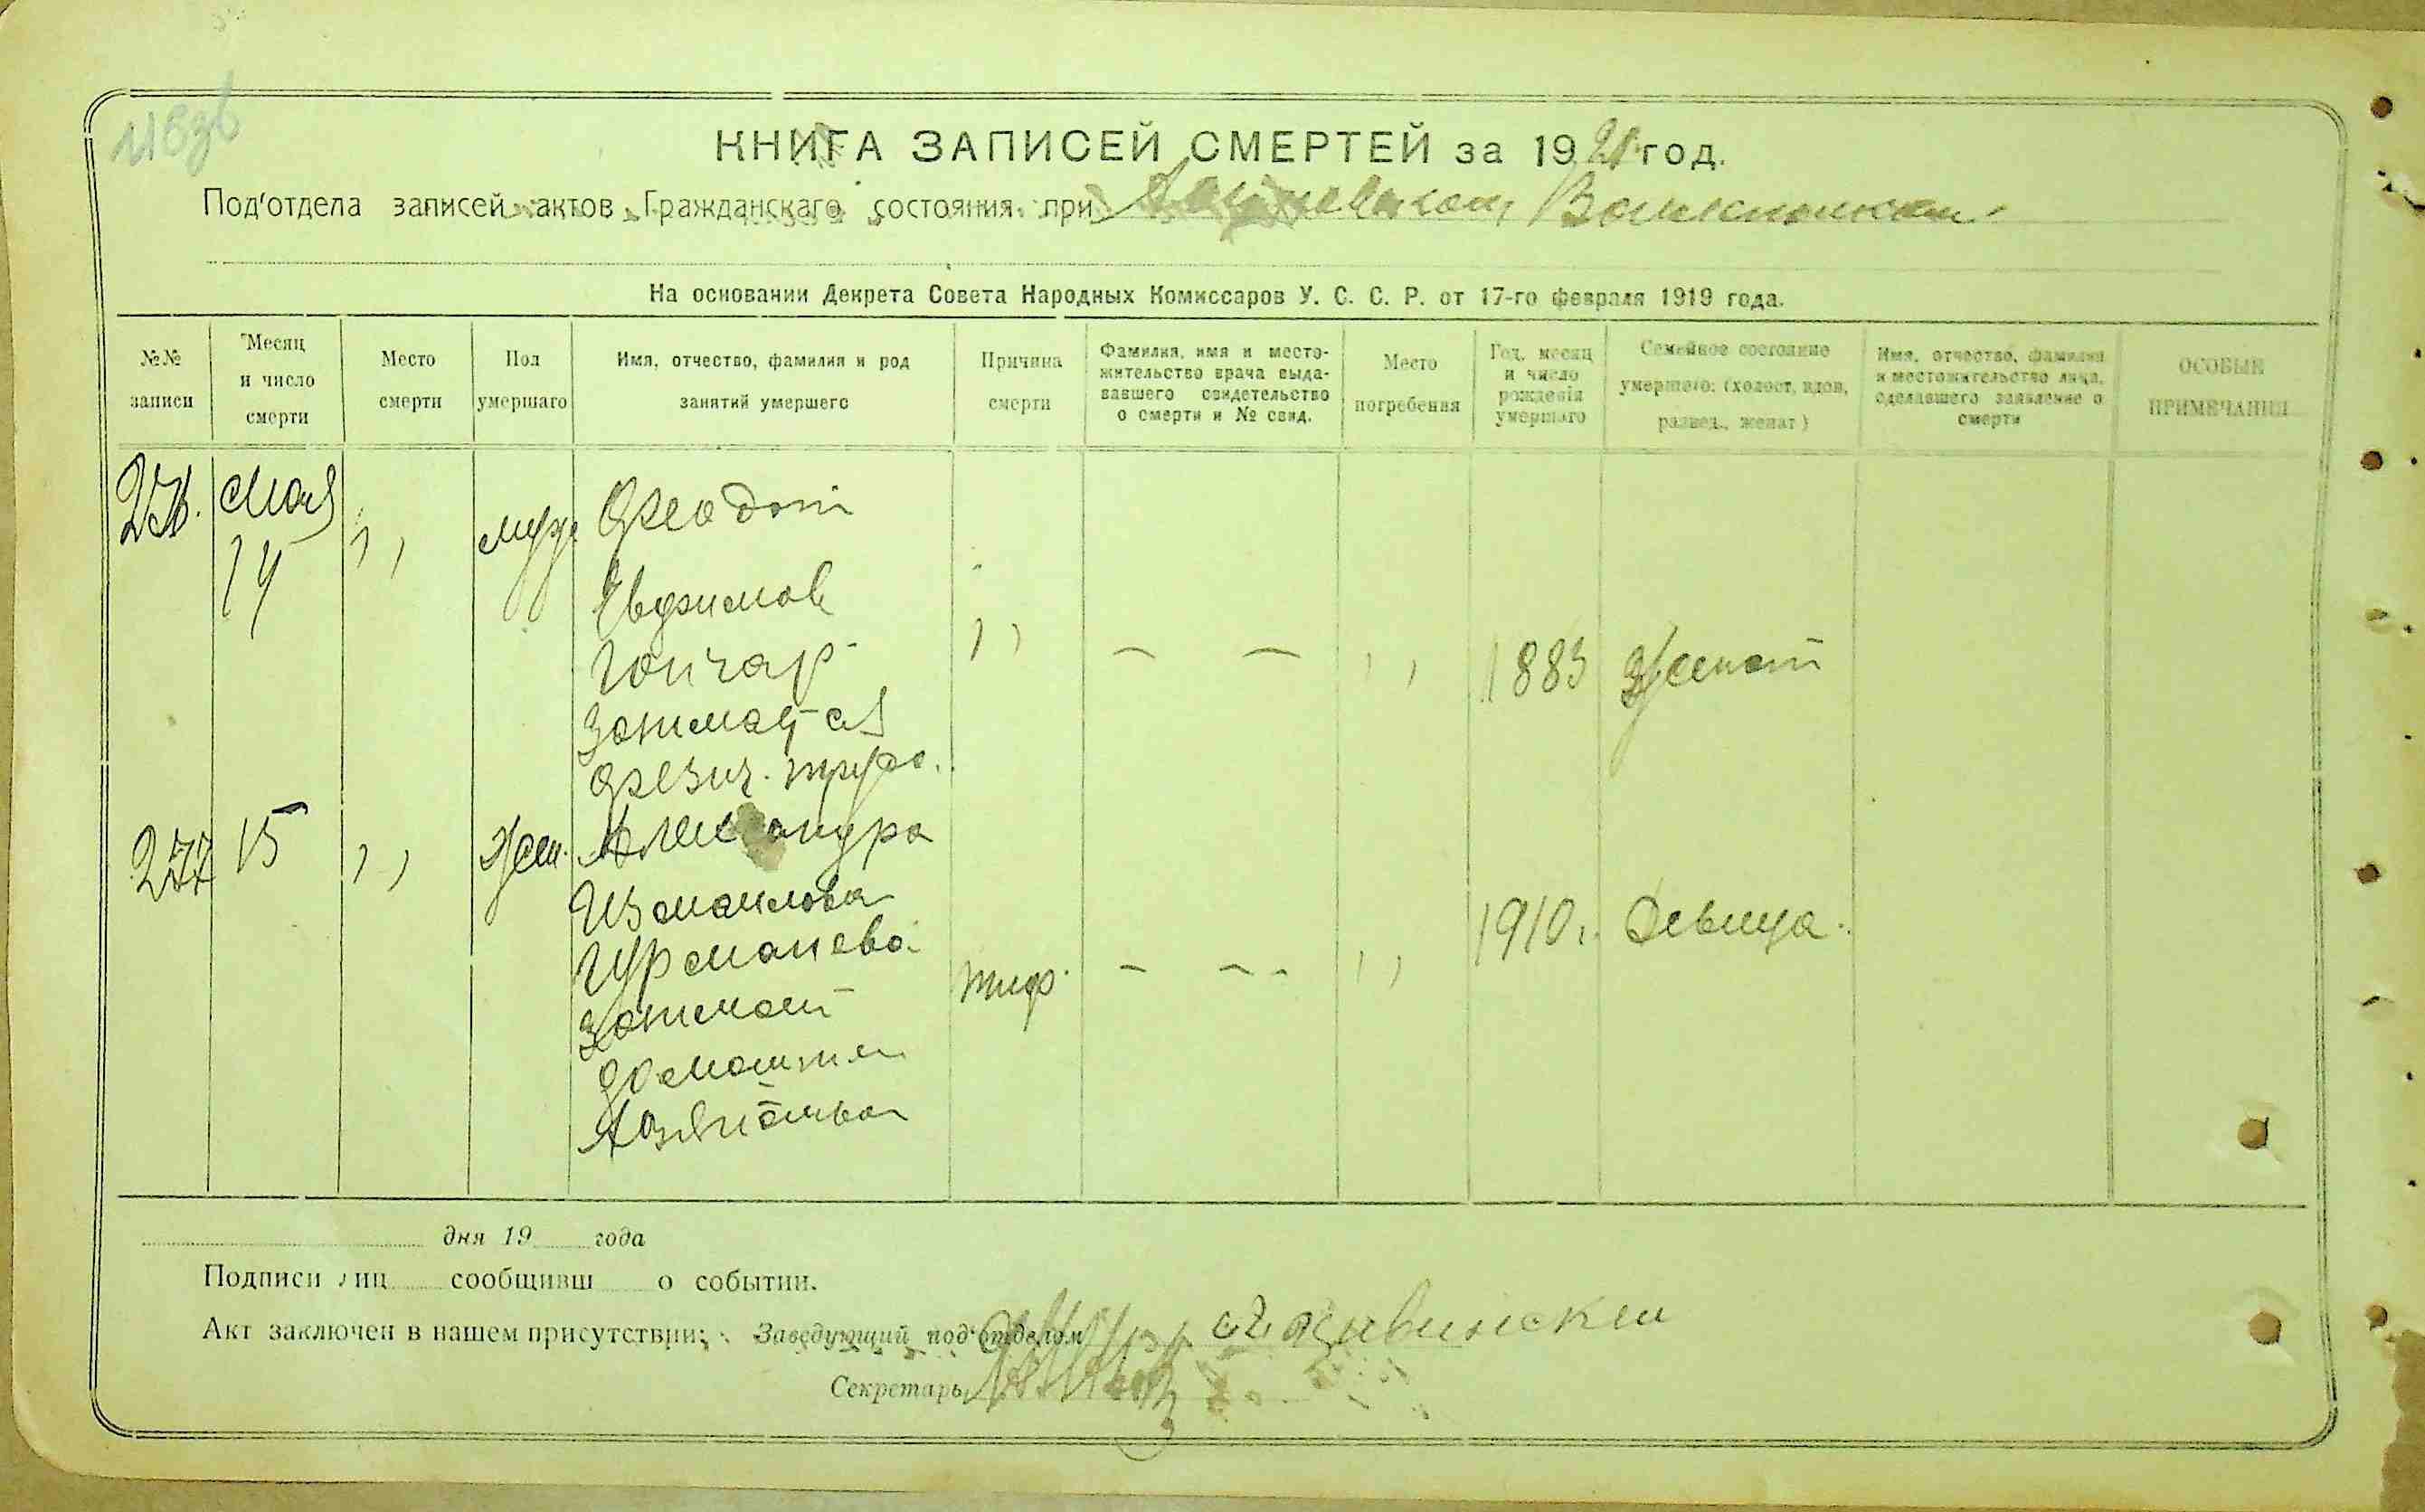 КНИГА ЗАПИСЕЙ СМЕРТЕЙ за 1921 год.
Под'отдела записей актов Гражданскаго состояния при Волисполкоме
На основании Декрета Совета Народных Комиссаров У. С. С. Р. от 17-го февраля 1919 года.
№№ записи
Месяц и число смерти
Место смерти
Пол умершаго
Имя, отчество, фамилия и род занятий умершего
Причина смерти
Фамилия, имя и место-жительство врача выда-вавшего свидетельство о смерти и № свид.
Место погребения
Год, месяц и число рождения умершаго
Семейное состояние умершего: (холост, вдов, развед., женат)
Имя, отчество, фамилия и местожительство лица, сделавшего заявление о смерти
ОСОБЫЯ ПРИМЕЧАНИЯ
276. Мая 14 ,, муж. Феодот
Евфимов
Гончар ,, — — ,, 1883 Женат
Занимался
физич. трудо.
277 15 ,, Жен. Александра
Измаилова
Гурманева тиф. — — ,, 1910 г. Девица.
Занимат
домашни
дня 19 года
Подписи лиц сообщивш о событии.
Акт заключен в нашем присутствии: Заведующий под'отделом
Секретарь